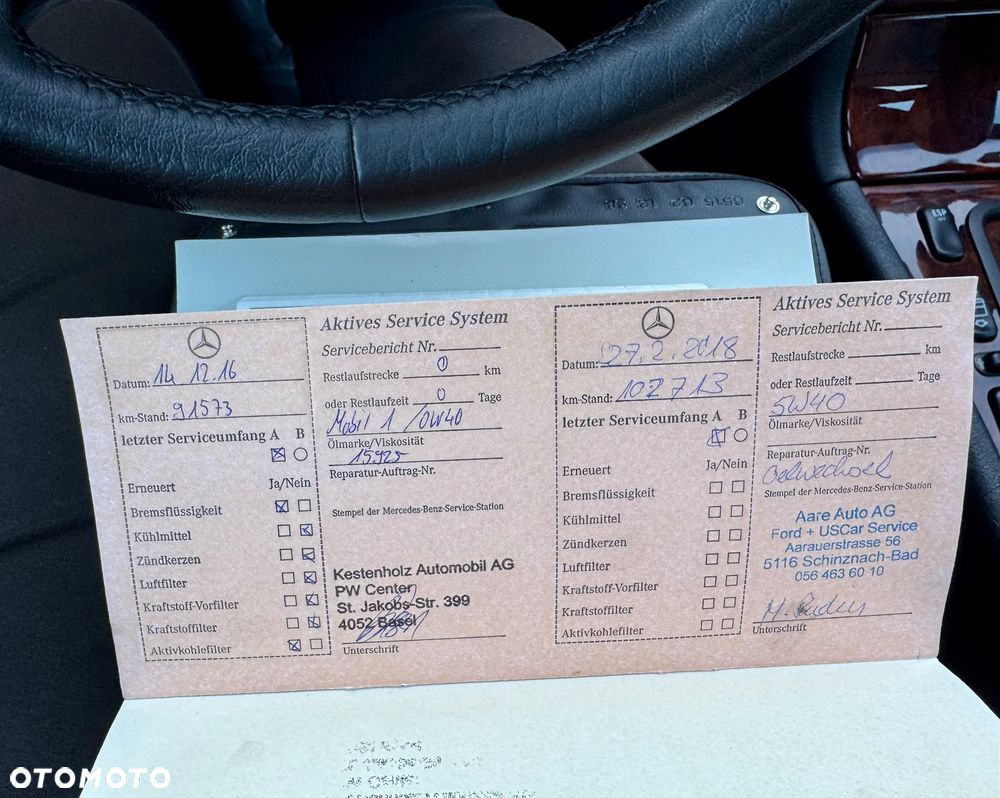 0515 02 13 98
ESP
Aktives Service System
Servicebericht Nr.
Datum: 14 12.16
Restlaufstrecke 0 km
km-Stand: 91573
oder Restlaufzeit 0 Tage
letzter Serviceumfang A B
Mobil 1 / 0W40
Ölmarke/Viskosität
15925
Reparatur-Auftrag-Nr.
Erneuert Ja/Nein
Bremsflüssigkeit
Stempel der Mercedes-Benz-Service-Station
Kühlmittel
Zündkerzen
Luftfilter
Kraftstoff-Vorfilter
Kraftstoffilter
Aktivkohlefilter
Kestenholz Automobil AG
PW Center
St. Jakobs-Str. 399
4052 Basel
Unterschrift
Aktives Service System
Servicebericht Nr.
Datum: 27.2.2018
Restlaufstrecke km
km-Stand: 102713
oder Restlaufzeit Tage
letzter Serviceumfang A B
5W40
Ölmarke/Viskosität
Reparatur-Auftrag-Nr.
Erneuert Ja/Nein
Oelwechsel
Bremsflüssigkeit
Stempel der Mercedes-Benz-Service-Station
Kühlmittel
Zündkerzen
Luftfilter
Kraftstoff-Vorfilter
Kraftstoffilter
Aktivkohlefilter
Aare Auto AG
Ford + USCar Service
Aarauerstrasse 56
5116 Schinznach-Bad
056 463 60 10
Unterschrift
OTOMOTO